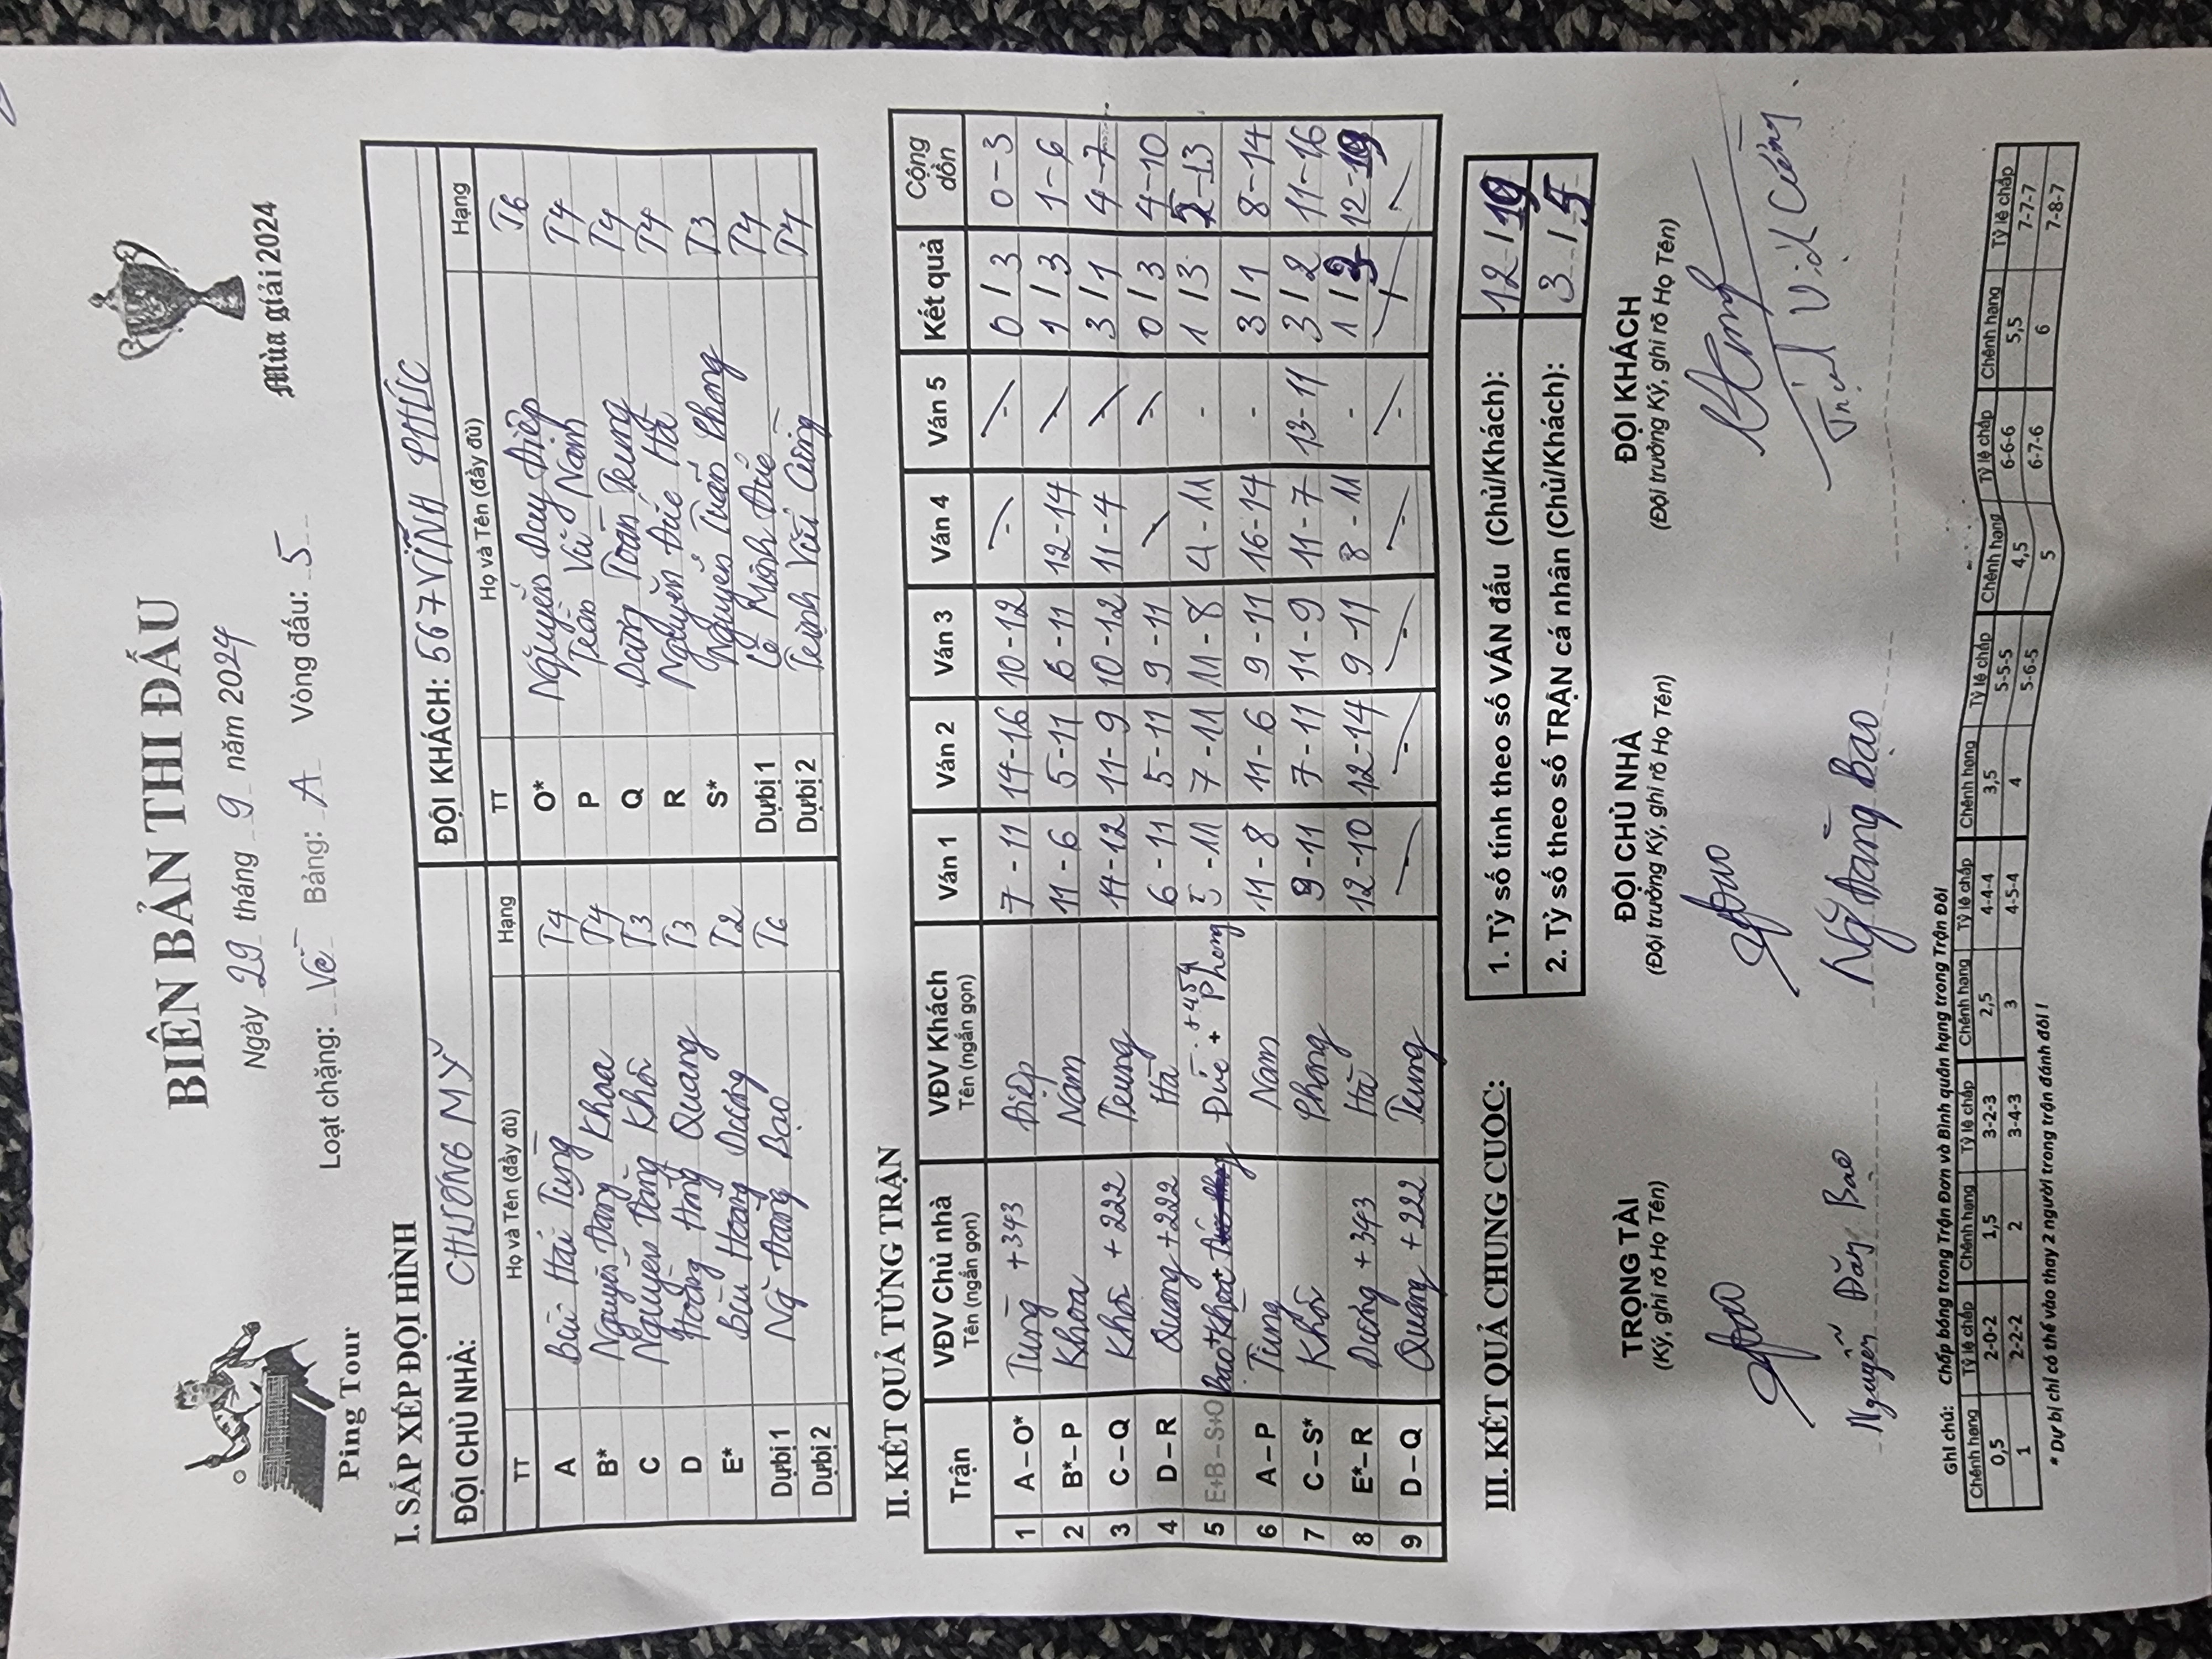 Ping Tour
BIÊN BẢN THI ĐẤU
Ngày 29 tháng 9 năm 2024
Loạt chặng: Về Bảng: A Vòng đấu: 5
Mùa giải 2024
I. SẮP XẾP ĐỘI HÌNH
ĐỘI CHỦ NHÀ: CHƯƠNG MỸ ĐỘI KHÁCH: 567 VĨNH PHÚC
TT Họ và Tên (đầy đủ) Hạng TT Họ và Tên (đầy đủ) Hạng
A Bùi Hải Tùng T4 O* Nguyễn Duy Điệp T6
B* Nguyễn Đăng Khoa T4 P Trần Vũ Nam T4
C Nguyễn Đăng Khôi T3 Q Dương Toàn Trung T4
D Hoàng Hồng Quang T3 R Nguyễn Đức Hà T4
E* Bùi Hoàng Dương T2 S* Nguyễn Tuấn Phong T3
Dự bị 1 Ng~ Đăng Bạo T6 Dự bị 1 Lê Minh Đức T4
Dự bị 2 Dự bị 2 Trịnh Việt Cường T4
II. KẾT QUẢ TỪNG TRẬN
Trận VĐV Chủ nhà Tên (ngắn gọn) VĐV Khách Tên (ngắn gọn) Ván 1 Ván 2 Ván 3 Ván 4 Ván 5 Kết quả Cộng dồn
1 A – O* Tùng +343 Điệp 7-11 14-16 10-12 - - 0/3 0-3
2 B*– P Khoa Nam 11-6 5-11 6-11 12-14 - 1/3 1-6
3 C – Q Khôi +222 Trung 14-12 11-9 10-12 11-4 - 3/1 4-7
4 D – R Quang +222 Hà 6-11 5-11 9-11 - - 0/3 4-10
5 E+B – S+O Bao+Khoa+ Đức + Phong +454 5-11 7-11 11-8 4-11 - 1/3 5-13
6 A – P Tùng Nam 11-8 11-6 9-11 16-14 - 3/1 8-14
7 C – S* Khôi Phong 9-11 7-11 11-9 11-7 13-11 3/2 11-16
8 E*– R Dương +343 Hà 12-10 12-14 9-11 8-11 - 1/3 12-19
9 D – Q Quang +222 Trung - - - - - /
III. KẾT QUẢ CHUNG CUỘC:
1. Tỷ số tính theo số VÁN đấu (Chủ/Khách): 12/19
2. Tỷ số theo số TRẬN cá nhân (Chủ/Khách): 3/5
TRỌNG TÀI ĐỘI CHỦ NHÀ ĐỘI KHÁCH
(Ký, ghi rõ Họ Tên) (Đội trưởng Ký, ghi rõ Họ Tên) (Đội trưởng Ký, ghi rõ Họ Tên)
Nguyễn Đăng Bao Ng~ Đăng Bạo Trịnh Việt Cường
Ghi chú: Chấp bóng trong Trận Đơn và Bình quân hạng trong Trận Đôi
Chênh hạng Tỷ lệ chấp Chênh hạng Tỷ lệ chấp Chênh hạng Tỷ lệ chấp Chênh hạng Tỷ lệ chấp Chênh hạng Tỷ lệ chấp Chênh hạng Tỷ lệ chấp
0,5 2-0-2 1,5 3-2-3 2,5 4-4-4 3,5 5-5-5 4,5 6-6-6 5,5 7-7-7
1 2-2-2 2 3-4-3 3 4-5-4 4 5-6-5 5 6-7-6 6 7-8-7
* Dự bị chỉ có thể vào thay 2 người trong trận đánh đôi !